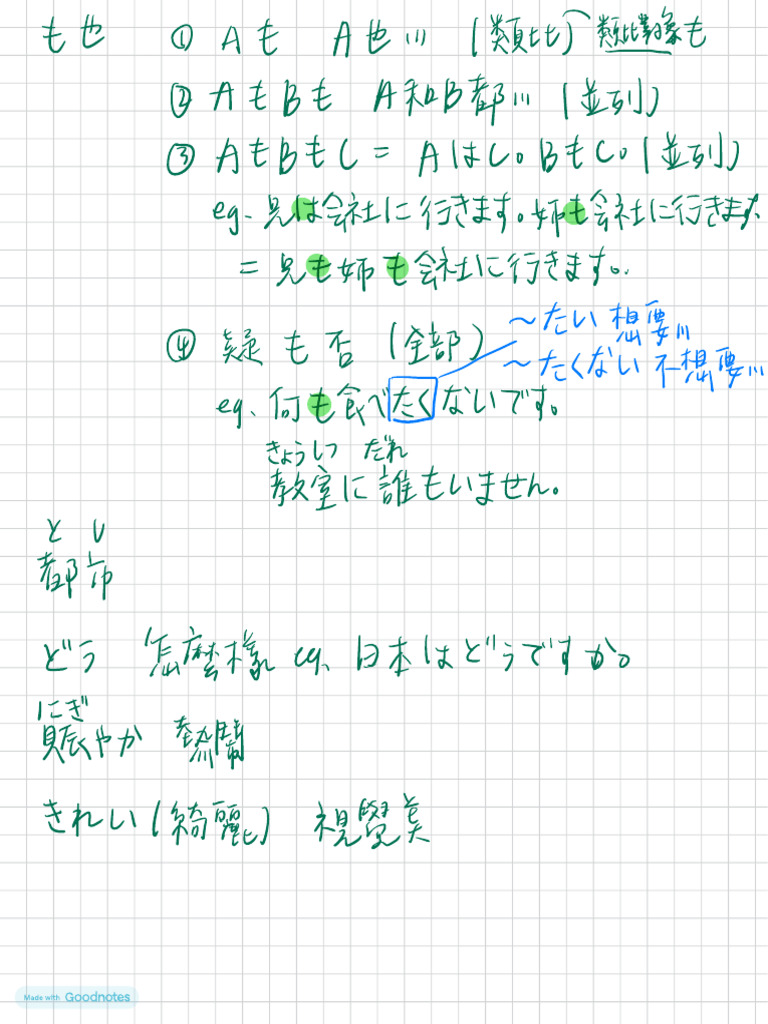 も 也 ① Aも A也⋯ (類比) 類比對象も
② AもBも A和B都⋯ (並列)
③ AもBもC = AはC。BもC。(並列)
eg. 兄は会社に行きます。姉も会社に行きます。
= 兄も姉も会社に行きます。
④ 疑も否 (全部)
~たい 想要⋯
~たくない 不想要⋯
eg. 何も食べたくないです。
きょうしつ だれ
教室に誰もいません。
とし
都市
どう 怎麼樣 eg. 日本はどうですか。
にぎ
賑やか 熱鬧
きれい(綺麗) 視覺美
Made with Goodnotes